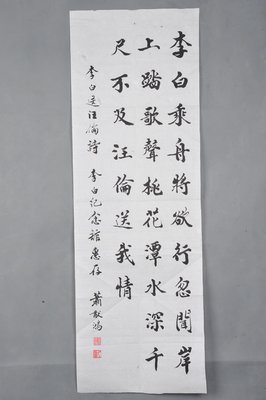 李白乘舟將欲行忽聞岸
上踏歌聲桃花潭水深千
尺不及汪倫送我情
李白送汪倫詩 李白紀念館惠存 蕭